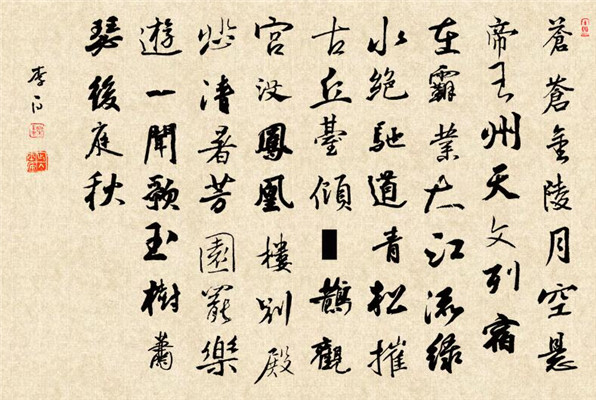 蒼蒼金陵月空悬
帝王州天文列宿
在霸業大江流綠
水絕馳道青松摧
古丘臺傾鵲觀
宮沒鳳凰樓別殿
悲清暑芳園罷樂
遊一聞歌玉樹蕭
瑟後庭秋
李白